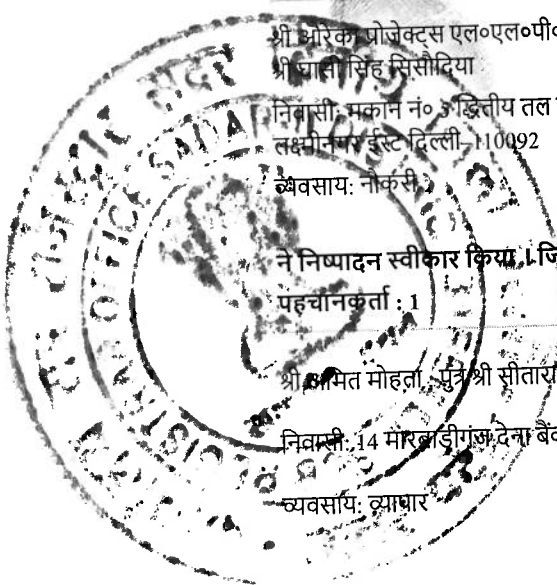 श्री ओरेका प्रोजेक्ट्स एल०एल०पी०
श्री घासी सिंह सिसौदिया
निवासी: मकान नं० 3 द्वितीय तल
लक्ष्मीनगर ईस्ट दिल्ली-110092
व्यवसाय: नौकरी
ने निष्पादन स्वीकार किया । जि
पहचानकर्ता : 1
श्री अमित मोहता , पुत्र श्री सीतारा
निवासी: 14 मारवाड़ीगंज देना बैंक
व्यवसाय: व्यापार
OFFICE SADAR